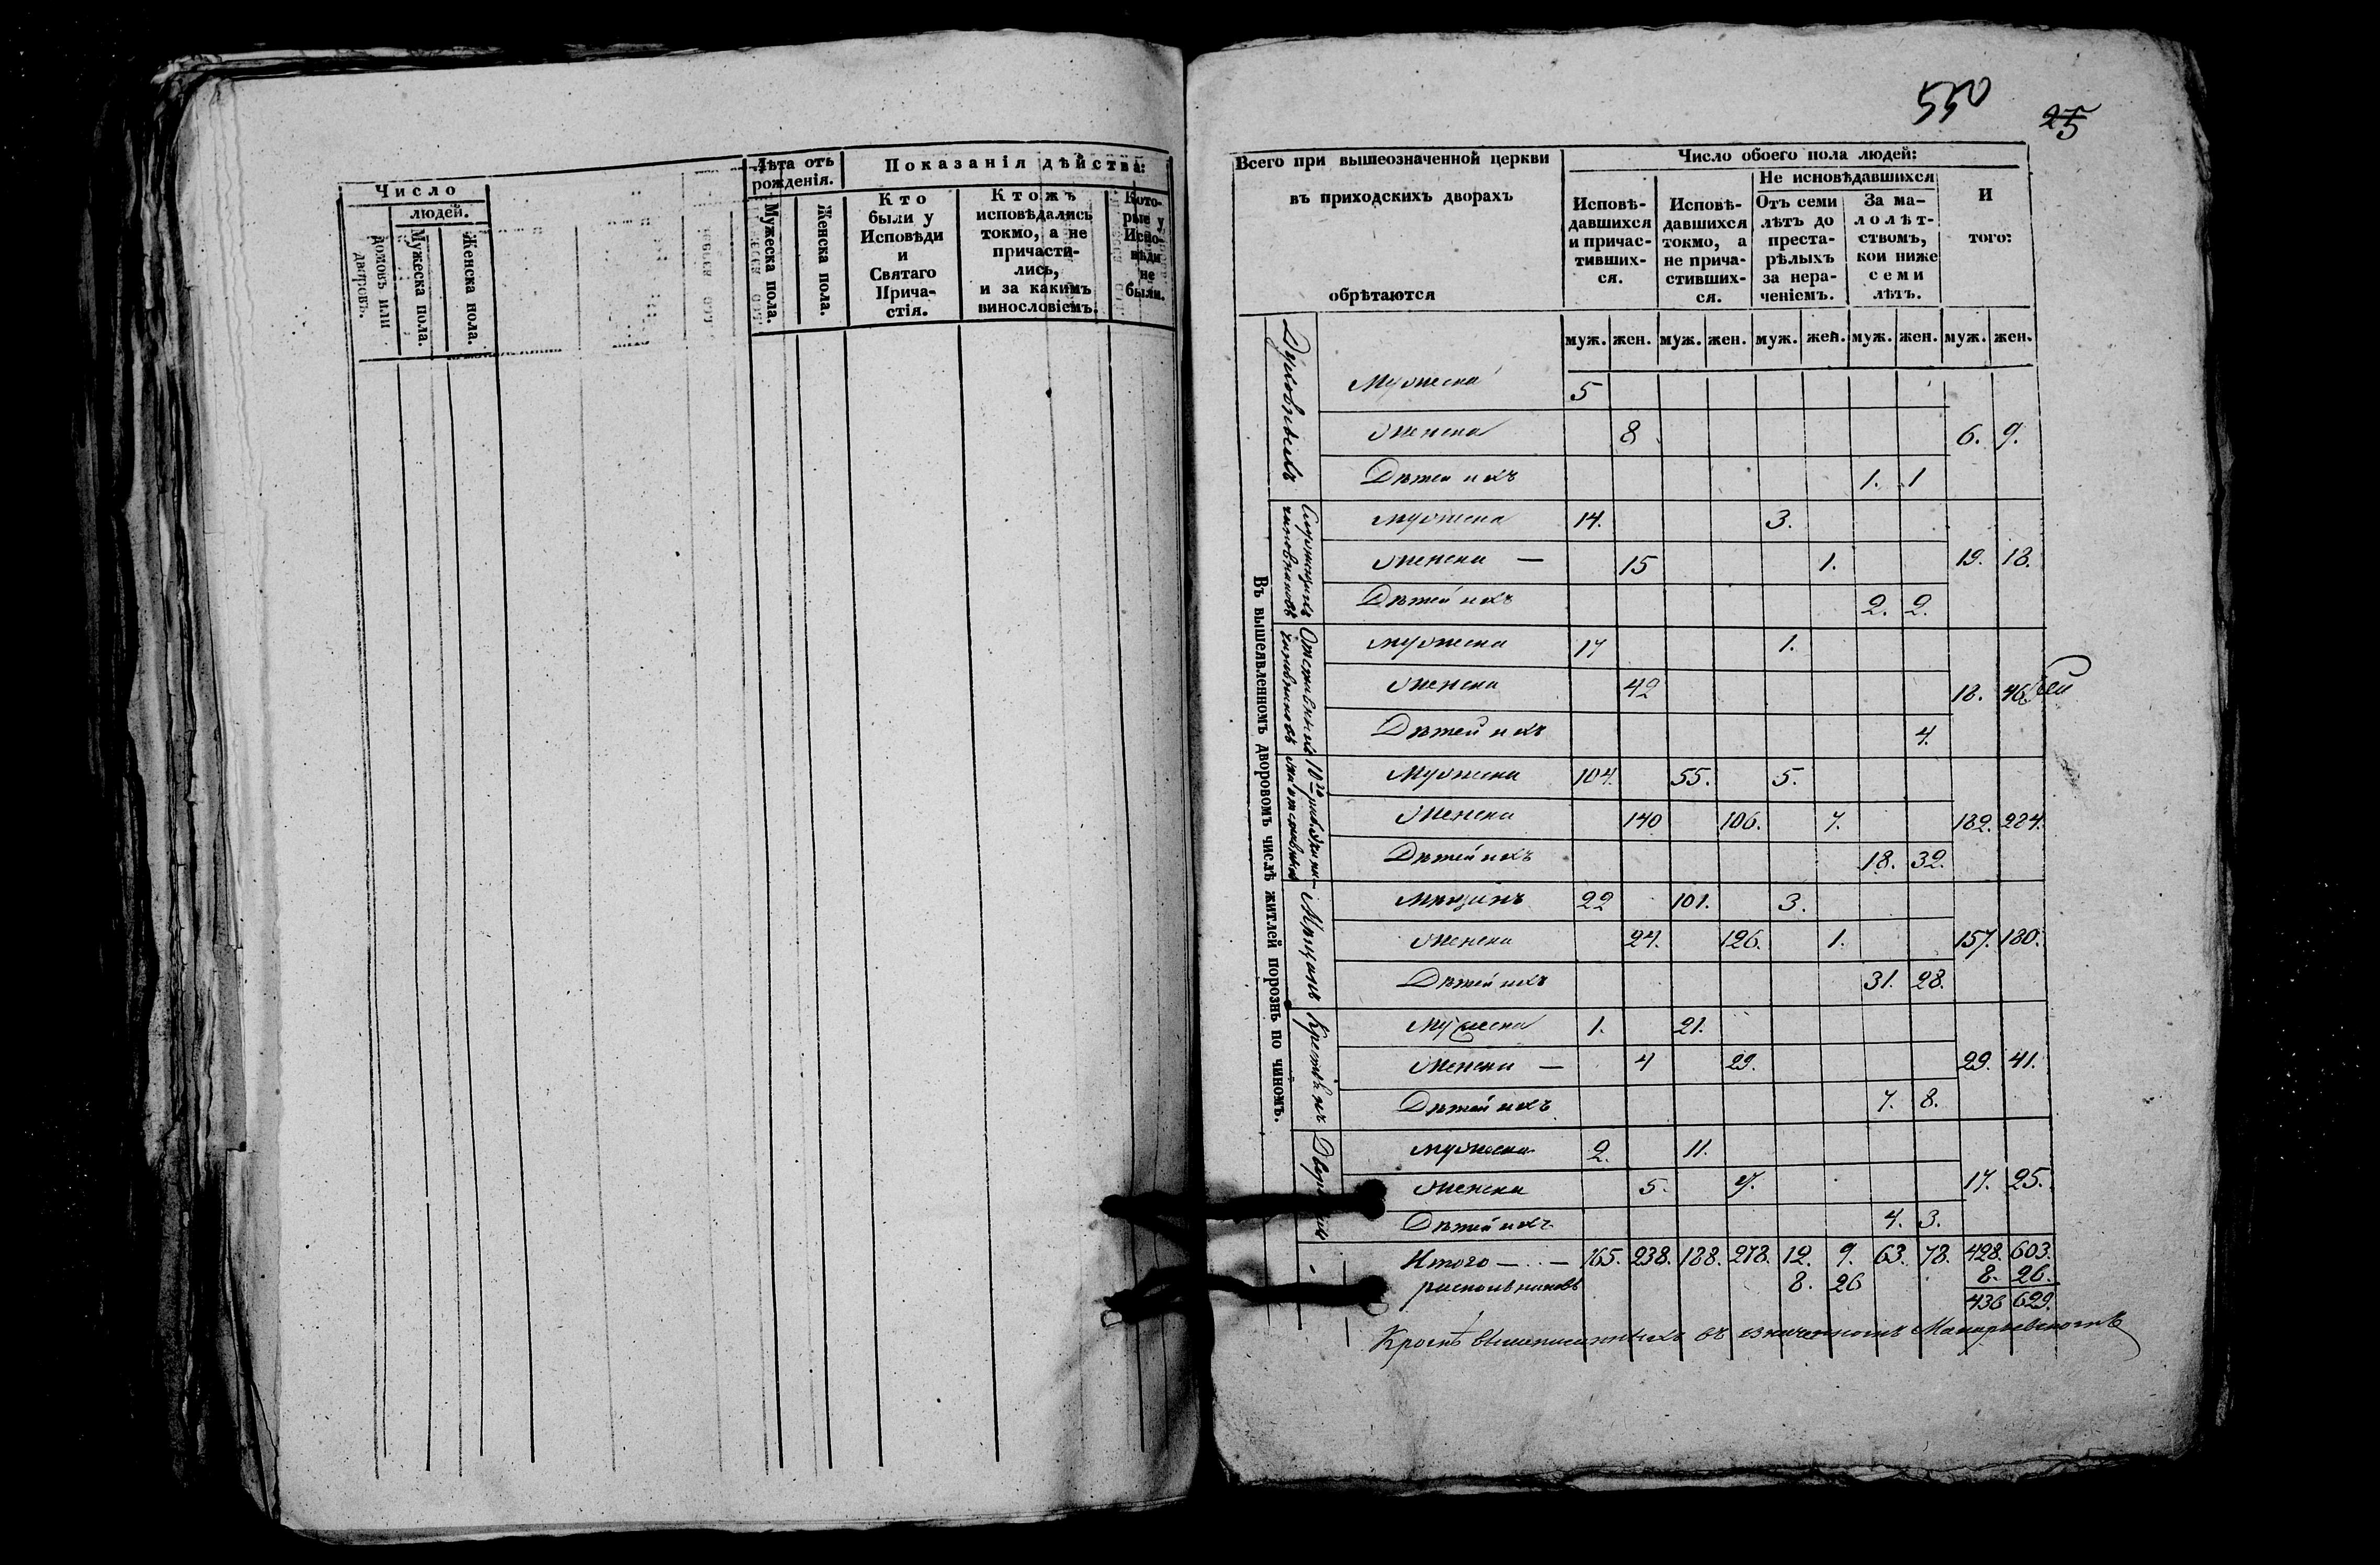 Число
людей.
домовъ или дворовъ.
Мужеска пола.
Женска пола.
Лѣта отъ рожденія.
Мужеска пола.
Женска пола.
Показанія дѣйства:
Кто
были у
Исповѣди
и
Святаго
Прича-
стія.
Ктожъ
исповѣдались
токмо, а не
причасти-
лись,
и за какимъ
винословіемъ.
Кото-
рые у
Испо-
вѣди
не
были.
550
25
Всего при вышеозначенной церкви
въ приходскихъ дворахъ
обрѣтаются
Число обоего пола людей:
Исповѣ-
давшихся
и причас-
тивших-
ся.
Исповѣ-
давшихся
токмо, а
не прича-
стивших-
ся.
Не исповѣдавшихся
Отъ семи
лѣтъ до
преста-
рѣлыхъ
за нера-
ченіемъ.
За ма-
лолѣт-
ствомъ,
кои ниже
семи
лѣтъ.
И
того:
муж. жен. муж. жен. муж. жен. муж. жен. муж. жен.
Въ вышеявленномъ дворовомъ числѣ житлей порознь по чиномъ.
Духовныхъ
Мужеска 5
Женска 8 6. 9.
Дѣтей ихъ 1. 1
Служащихъ чиновниковъ
Мужеска 14. 3.
Женска — 15 1. 19. 18.
Дѣтей ихъ 2. 2.
Отставныхъ чиновниковъ
Мужеска 17 1.
Женска 42 18. 46
Дѣтей ихъ 4.
Мужеска 104. 55. 5.
Женска 140 106. 7. 182. 284.
Дѣтей ихъ 18. 32.
Мѣщанъ
Мѣщанъ 22 101. 3.
Женска 24. 126. 1. 157. 180.
Дѣтей ихъ 31. 28.
Мужеска 1. 21.
Женска — 4 29. 29. 41.
Дѣтей ихъ 7. 8.
Мужеска 2. 11.
Женска 5. 17. 25.
Дѣтей ихъ 4. 3.
Итого — 165. 238. 188. 278. 12. 9. 63. 78. 428. 603.
раскольниковъ 8. 26 8. 26.
436 629.
Кромѣ вышеписанныхъ въ означенномъ Макарьевскомъ